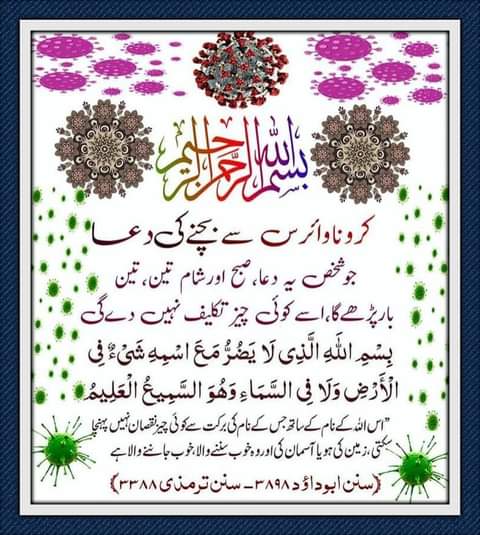 بسم الله الرحمن الرحيم
کرونا وائرس سے بچنے کی دعا
جو شخص یہ دعا، صبح اور شام تین، تین
بار پڑھے گا، اسے کوئی چیز تکلیف نہیں دے گی
بِسْمِ اللهِ الَّذِي لَا يَضُرُّ مَعَ اسْمِهِ شَيْءٌ فِي
الْأَرْضِ وَلَا فِي السَّمَاءِ وَهُوَ السَّمِيعُ الْعَلِيمُ
”اس اللہ کے نام کے ساتھ جس کے نام کی برکت سے کوئی چیز نقصان نہیں پہنچا
سکتی، زمین کی ہو یا آسمان کی اور وہ خوب سننے والا، خوب جاننے والا ہے
(سنن ابوداؤد ۳۸۹۸- سنن ترمذی ۳۳۸۸)